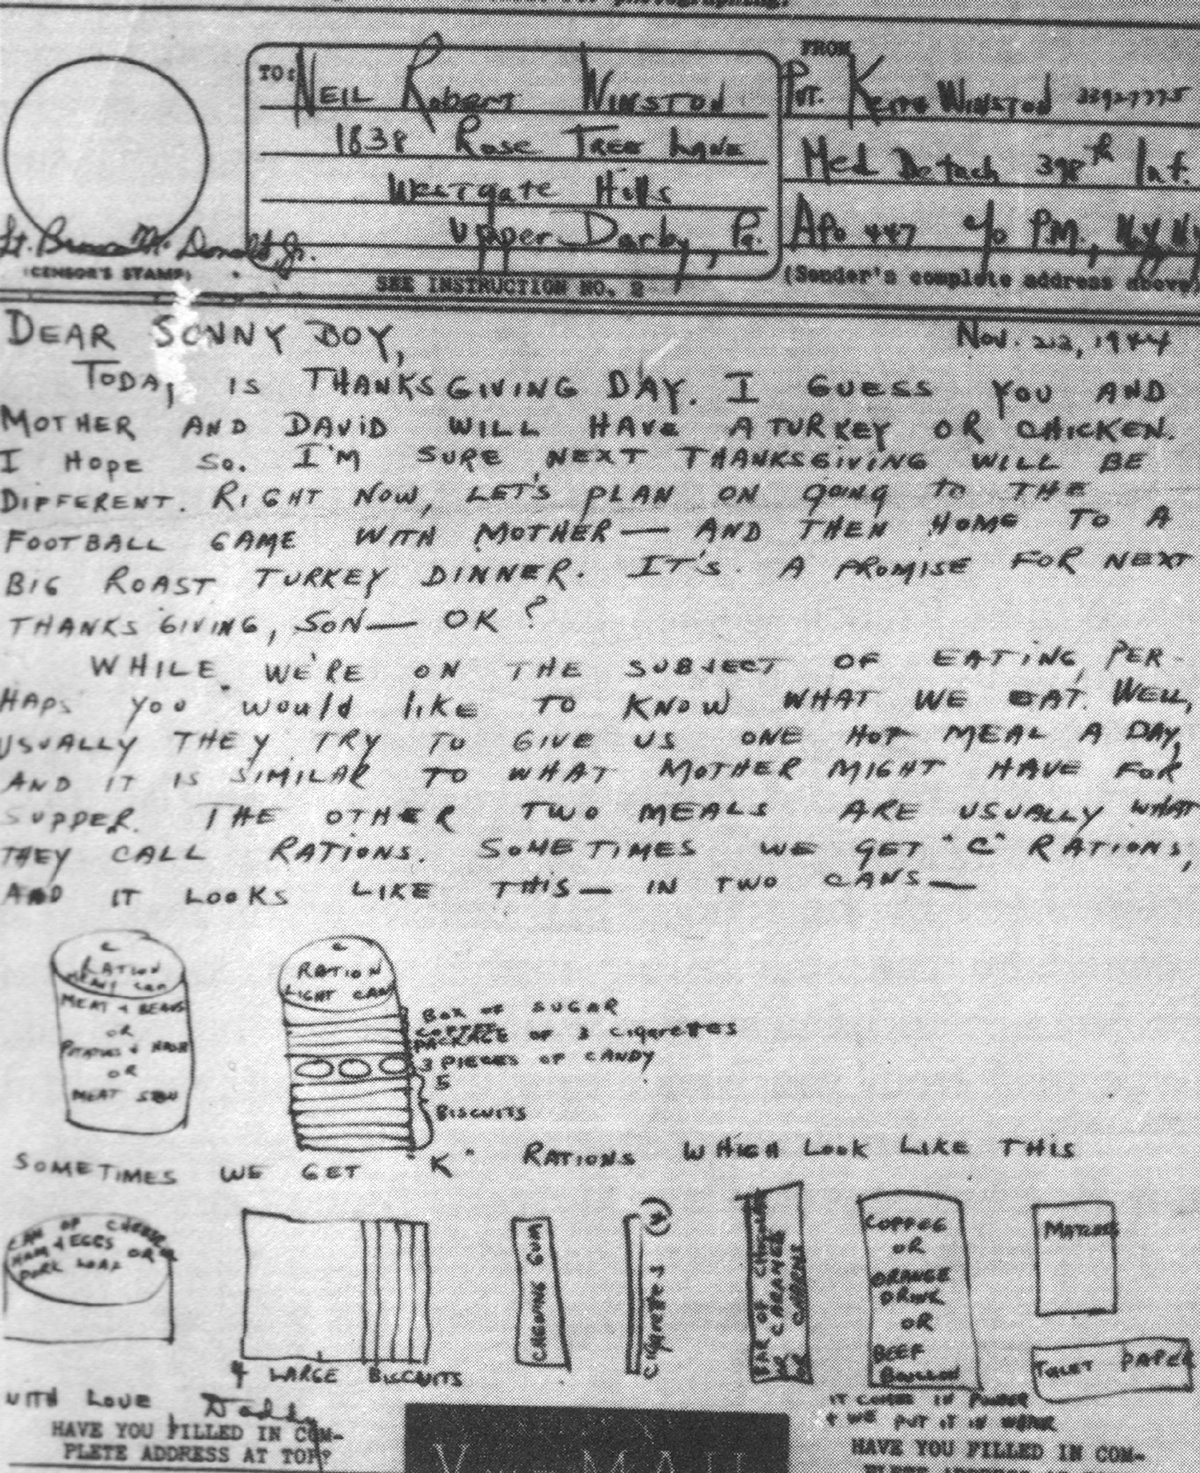 for photographing.
TO: NEIL Robert WINSTON
1838 Rose TREE LANE
Westgate Hills
Upper Darby, Pa.
SEE INSTRUCTION NO. 2
FROM
Pvt. KEITH WINSTON 33927775
Med Detach 398th Inf.
APO 447 c/o PM., N.Y. N.Y
(Sender's complete address above)
Lt. Bruce McDonald, Jr.
(CENSOR'S STAMP)
DEAR SONNY BOY,
Nov. 23, 1944
TODAY IS THANKSGIVING DAY. I GUESS YOU AND
MOTHER AND DAVID WILL HAVE A TURKEY OR CHICKEN.
I HOPE SO. I'M SURE NEXT THANKSGIVING WILL BE
DIFFERENT. RIGHT NOW, LET'S PLAN ON GOING TO THE
FOOTBALL GAME WITH MOTHER — AND THEN HOME TO A
BIG ROAST TURKEY DINNER. IT'S A PROMISE FOR NEXT
THANKSGIVING, SON — OK?
WHILE WE'RE ON THE SUBJECT OF EATING, PER-
HAPS YOU would liKE TO KNOW WHAT WE EAT. WELL,
USUALLY THEY TRY TO GIVE US ONE HOT MEAL A DAY,
AND IT IS SIMILAR TO WHAT MOTHER MIGHT HAVE FOR
SUPPER. THE OTHER TWO MEALS ARE USUALLY WHAT
THEY CALL RATIONS. SOMETIMES WE GET "C" RATIONS,
AND IT LOOKS LIKE THIS — IN TWO CANS —
C
RATION
HEAVY CAN
MEAT + BEANS
OR
POTATOES + HASH
OR
MEAT STEW
C
RATION
LIGHT CAN
BOX OF SUGAR
COFFEE
PACKAGE OF 3 CIGARETTES
3 PIECES OF CANDY
5
BISCUITS
SOMETIMES WE GET "K" RATIONS WHICH LOOK LIKE THIS
CAN OF CHEESE,
HAM + EGGS OR
PORK LOAF
4 LARGE BISCCUITS
CHEWING GUM
CIGARETTES (4)
BAR OF
OR CARAMELS
OR
COFFEE
OR
ORANGE
DRINK
OR
BEEF
BOUILLON
IT COMES IN POWDER
+ WE PUT IT IN WATER
MATCHES
TOILET PAPER
WITH LOVE Daddy
HAVE YOU FILLED IN COM-
PLETE ADDRESS AT TOP?
V MAIL
HAVE YOU FILLED IN COM-
PLETE ADDRESS